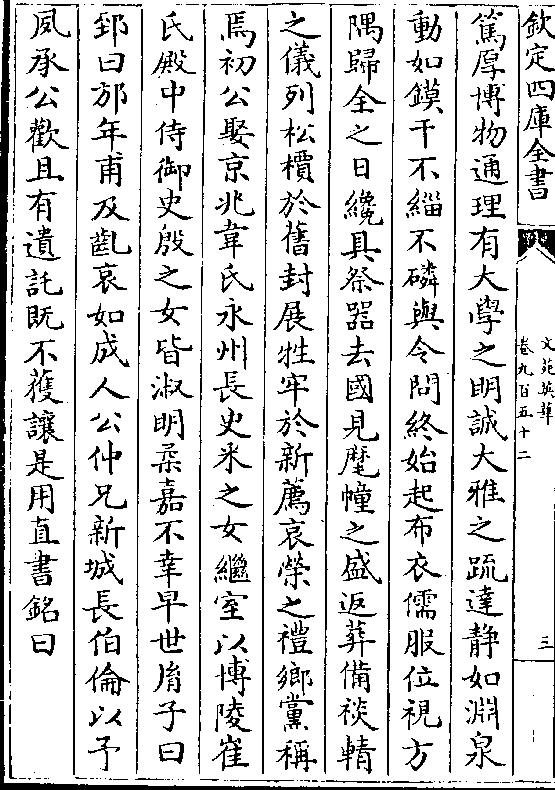 欽定四庫全書
文苑英華
卷九百五十二
三
篤厚博物通理有大學之明誠大雅之疏達静如淵泉
動如鏌干不緇不磷與令問終始起布衣儒服位視方
隅歸全之日纔具祭器去國見麾幢之盛返葬備祲輤
之儀列松檟於舊封展牲牢於新薦哀榮之禮鄉黨稱
焉初公娶京兆韋氏永州長史米之女繼室以博陵崔
氏殿中侍御史殷之女皆淑明柔嘉不幸早世胤子曰
郅曰邡年甫及齓哀如成人公仲兄新城長伯倫以予
夙承公歡且有遺託既不獲讓是用直書銘曰